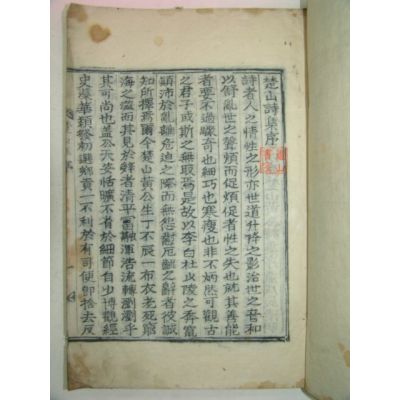 楚山詩集序
詩者人之情性之形亦世道升降之影治世之音和
以舒亂世之聲煩而促煩促者性之失也就其善能
者要不過驪奇也細巧也寒瘦也非不然可觀古
之君子或斯之無取焉是故以李白杜少陵之奔竄
顚沛於亂離危迫之際而無怨懟厄酈之辭者彼誠
知所擇焉爾今楚山黃公生丁不辰一布衣老死窮
海之濱而其見於辭者清平富融渾浩流轉瀏瀏乎
其可尚也盖公天姿恬曠不省於細節自少博觀經
史蔓華類發初選鄕貢一不利於有司便卽捨去反